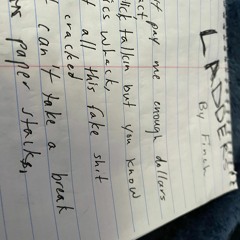 LADDERS
By Finch
t pay me enough dollars
act,
lick talkin but you know
ics whack,
t all this fake shit
cracked
t can't take a break
ms paper stacks,